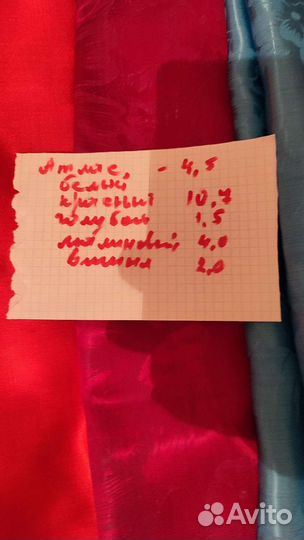 Атлас, - 4,5
белый
красный 10,7
голубой 1,5
малиновый 4,0
вишня 2,0
Avito